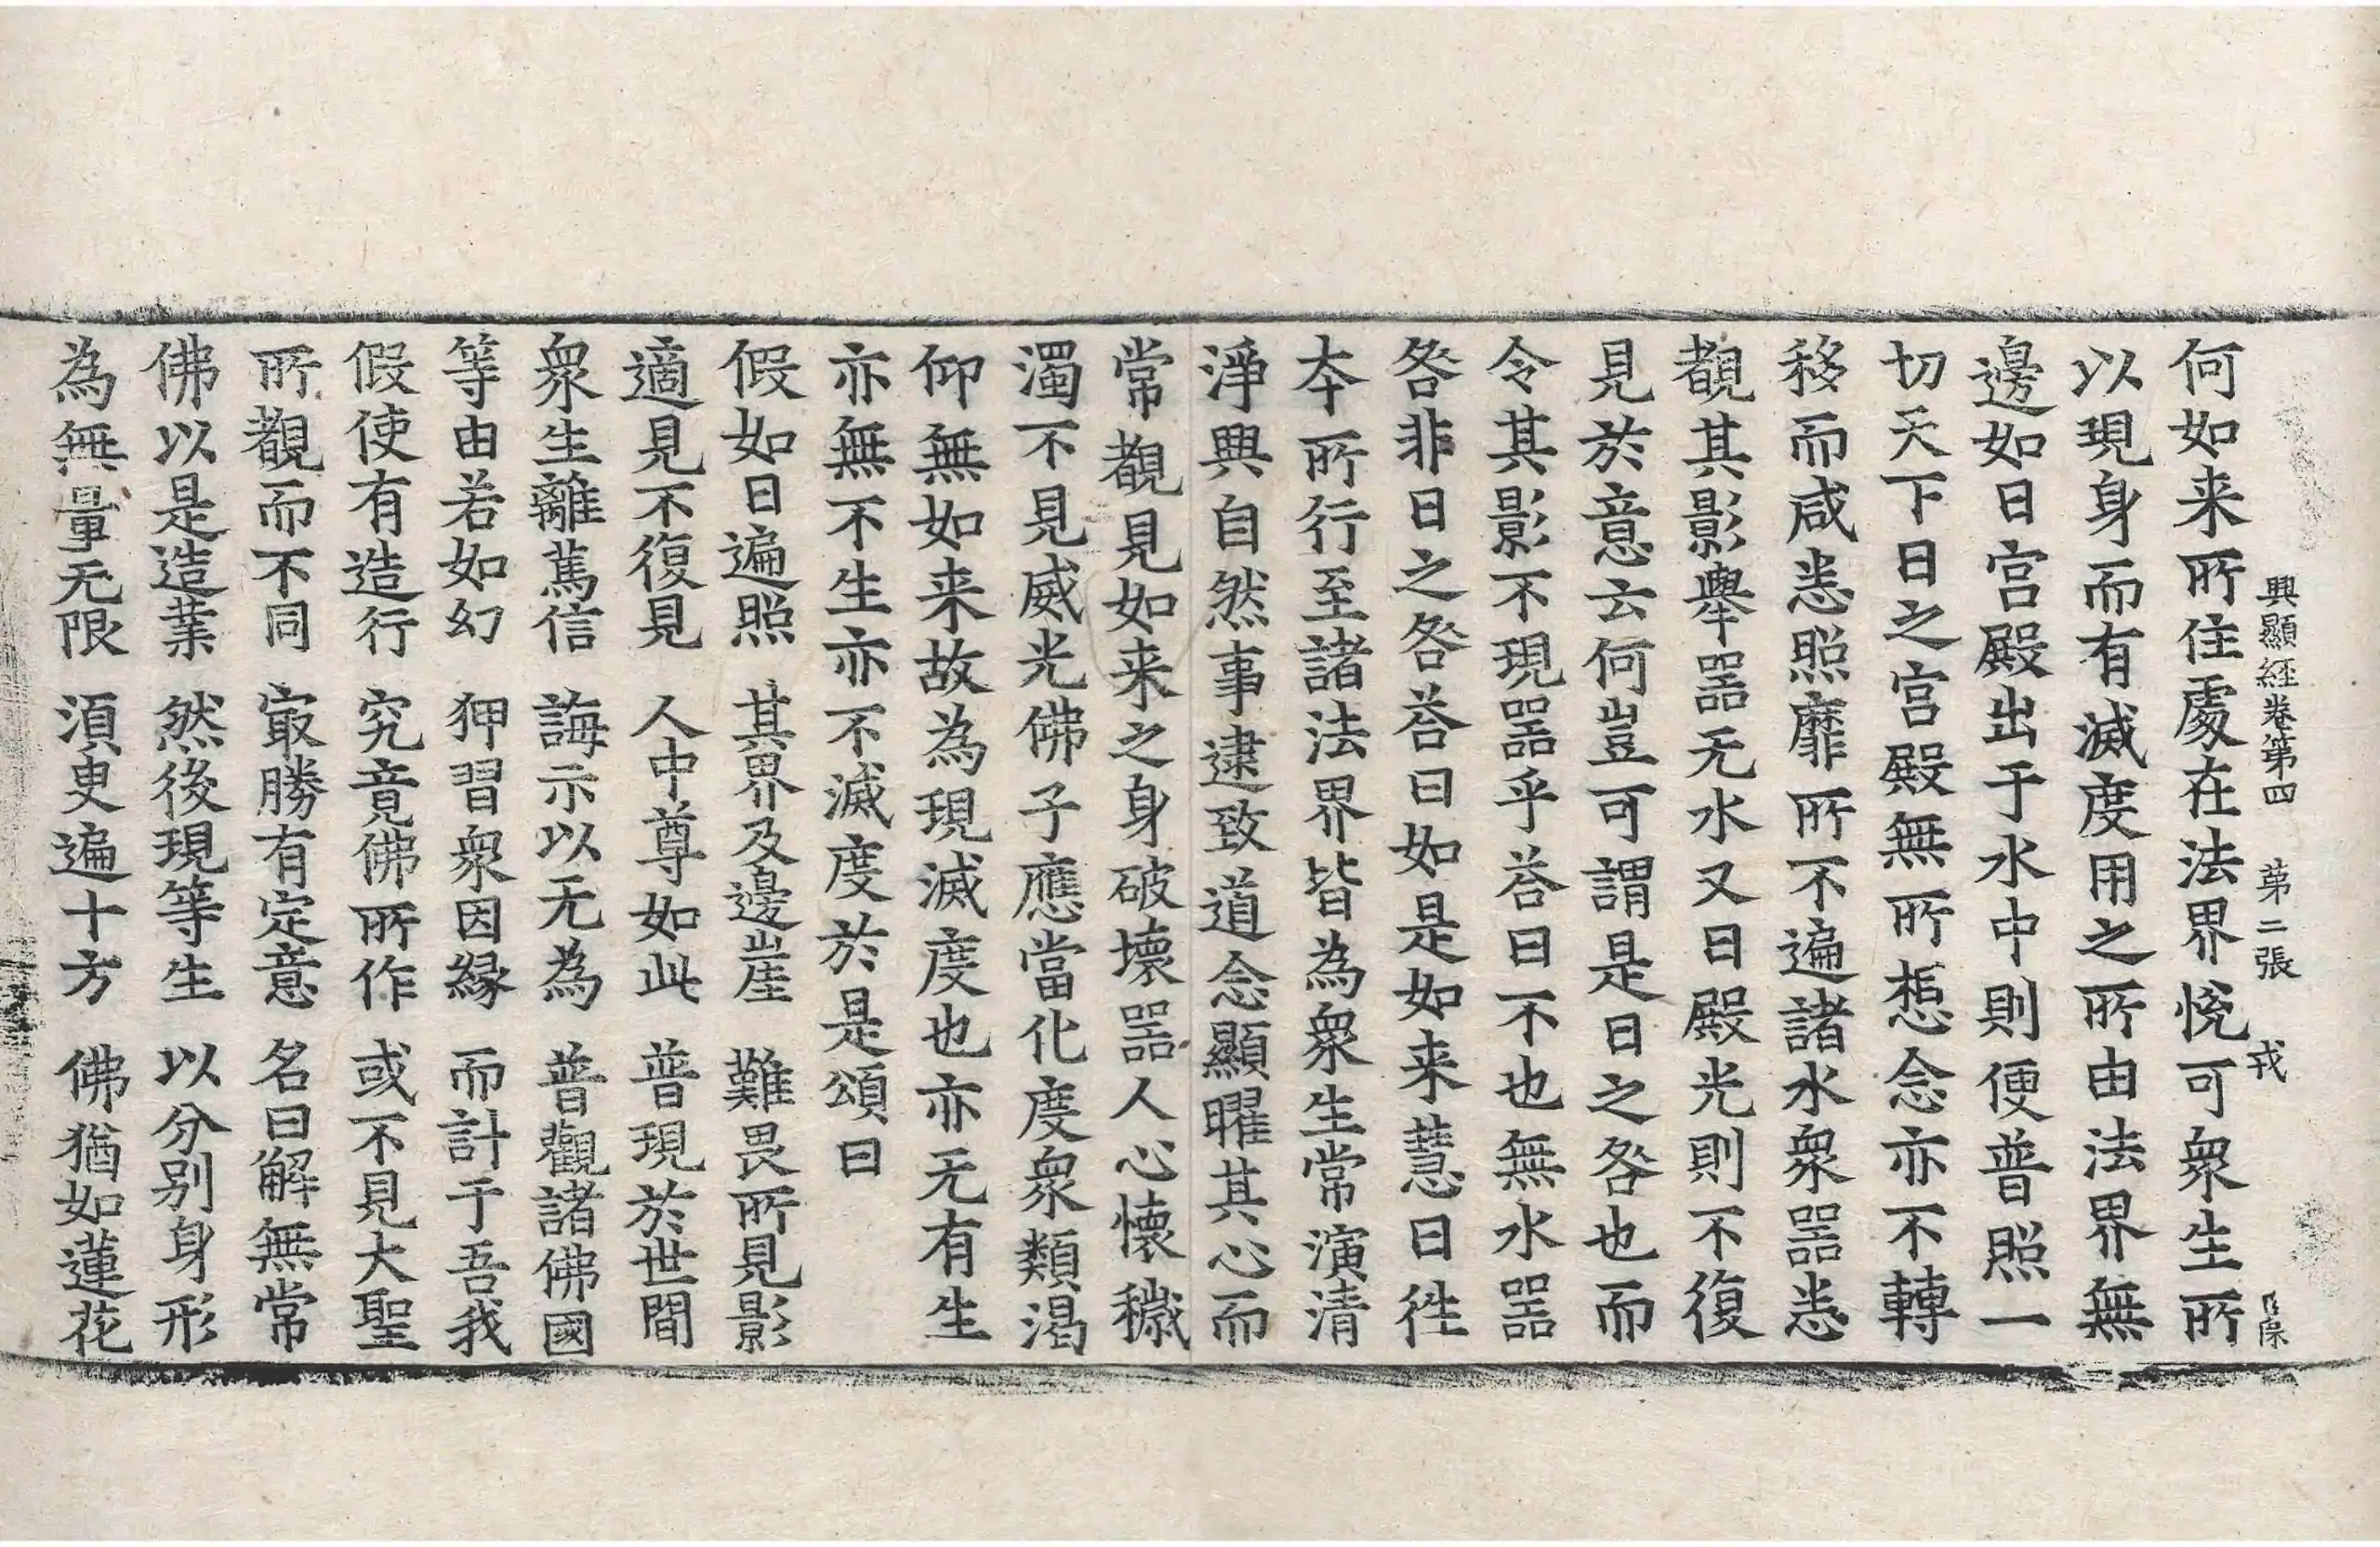 興顯經卷第四 第二張 戎
何如来所住處在法界悅可衆生所
以現身而有滅度用之所由法界無
邊如日宫殿出于水中則便普照一
切天下日之宫殿無所想念亦不轉
移而咸悉照靡所不遍諸水衆器悉
覩其影舉器无水又日殿光則不復
見於意云何豈可謂是日之咎也而
令其影不現器乎荅曰不也無水器
咎非日之咎荅曰如是如来慧日徃
本所行至諸法界皆為衆生常演清
淨興自然事逮致道念顯曜其心而
常覩見如来之身破壞器人心懷穢
濁不見威光佛子應當化度衆類渴
仰無如来故為現滅度也亦无有生
亦無不生亦不滅度於是頌曰
假如日遍照 其界及邊崖 難畏所見影
適見不復見 人中尊如此 普現於世間
衆生離篤信 誨示以无為 普觀諸佛國
等由若如幻 狎習衆因縁 而計于吾我
假使有造行 究竟佛所作 或不見大聖
所覩而不同 㝡勝有定意 名曰解無常
佛以是造業 然後現等生 以分别身形
為無量无限 湏臾遍十方 佛猶如蓮花